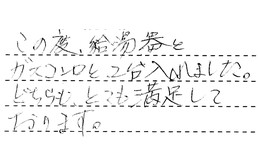 この度、給湯器と
ガスコンロと2台入れました。
どちらも、とても満足して
おります。